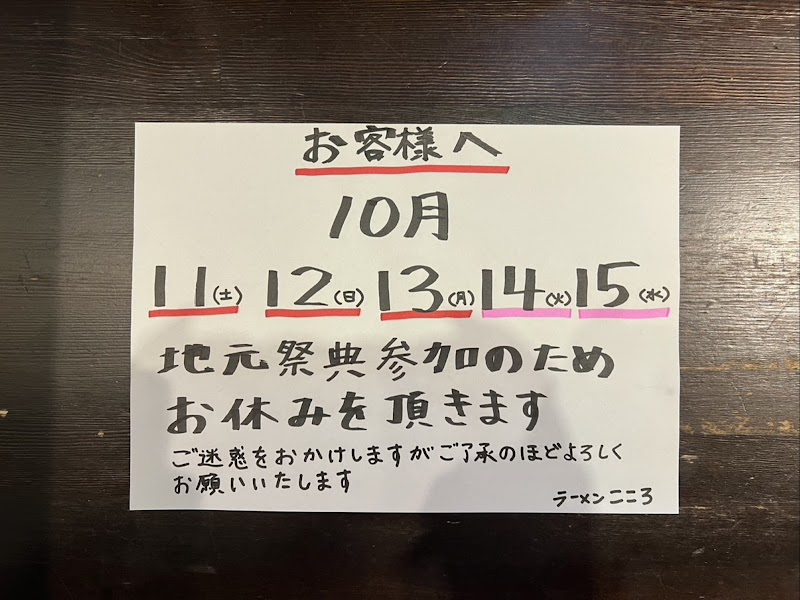 お客様へ
10月
11(土) 12(日) 13(月) 14(火) 15(水)
地元祭典参加のため
お休みを頂きます
ご迷惑をおかけしますがご了承のほどよろしく
お願いいたします
ラーメンこころ